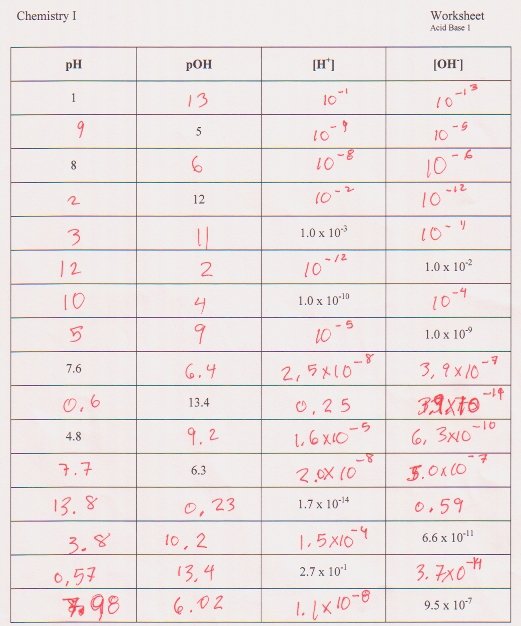 Chemistry I Worksheet
Acid Base 1
pH pOH [H⁺] [OH⁻]
1 13 10⁻¹ 10⁻¹³
9 5 10⁻⁹ 10⁻⁵
8 6 10⁻⁸ 10⁻⁶
2 12 10⁻² 10⁻¹²
3 11 1.0 x 10⁻³ 10⁻¹¹
12 2 10⁻¹² 1.0 x 10⁻²
10 4 1.0 x 10⁻¹⁰ 10⁻⁴
5 9 10⁻⁵ 1.0 x 10⁻⁹
7.6 6.4 2,5x10⁻⁸ 3,9x10⁻⁷
0,6 13.4 0,25 x10⁻¹⁴
4.8 9.2 1,6x10⁻⁵ 6,3x10⁻¹⁰
7.7 6.3 2.0x10⁻⁸ 5.0x10⁻⁷
13.8 0,23 1.7 x 10⁻¹⁴ 0.59
3.8 10,2 1.5x10⁻⁴ 6.6 x 10⁻¹¹
0,57 13,4 2.7 x 10⁻¹ 3.7x10⁻¹⁴
7.98 6.02 1.1x10⁻⁸ 9.5 x 10⁻⁷